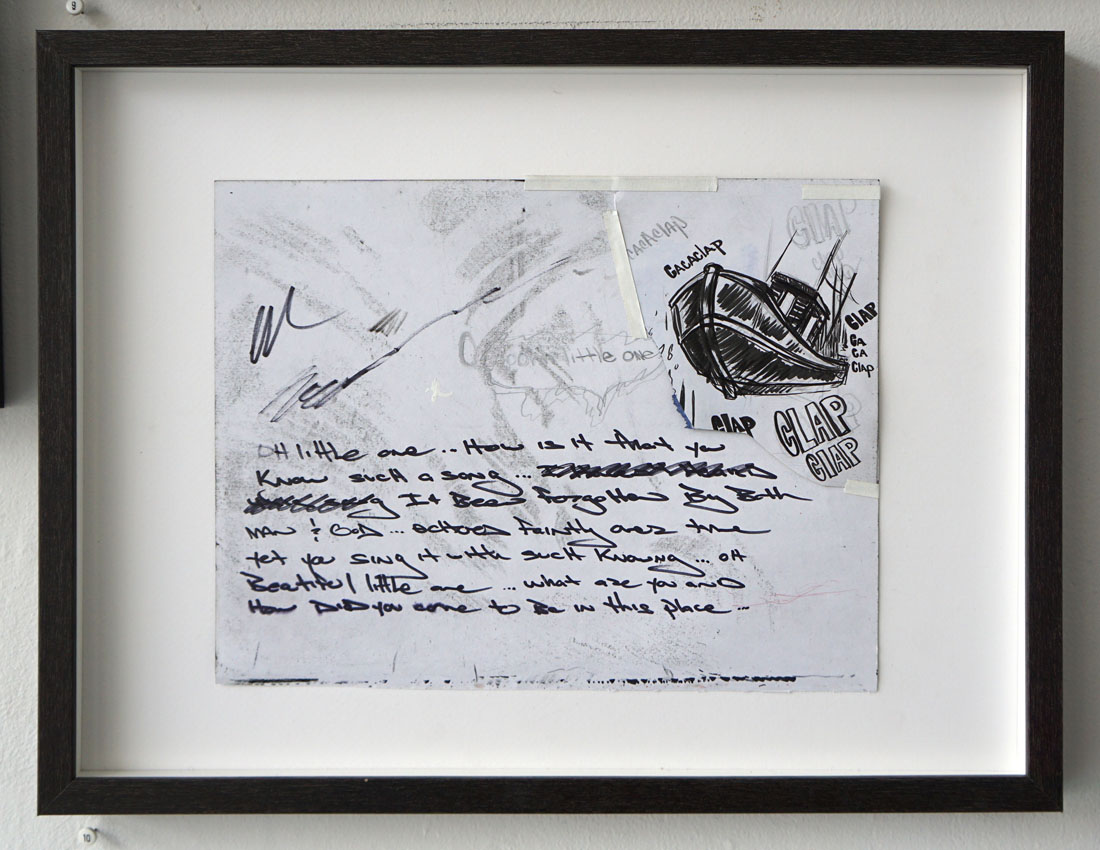 9
CACACLAP
CLAP
CACACLAP
little one
CLAP
CA
CA
CLAP
CLAP
CLAP
CLAP
OH little one .. How is it that you
Know such a song ...
It Been Forgotten By Both
man & GOD ... echoes faintly over time
yet you sing it with such knowing ... OH
Beautiful little one ... what are you and
How DID you come to Be in this place ...
10